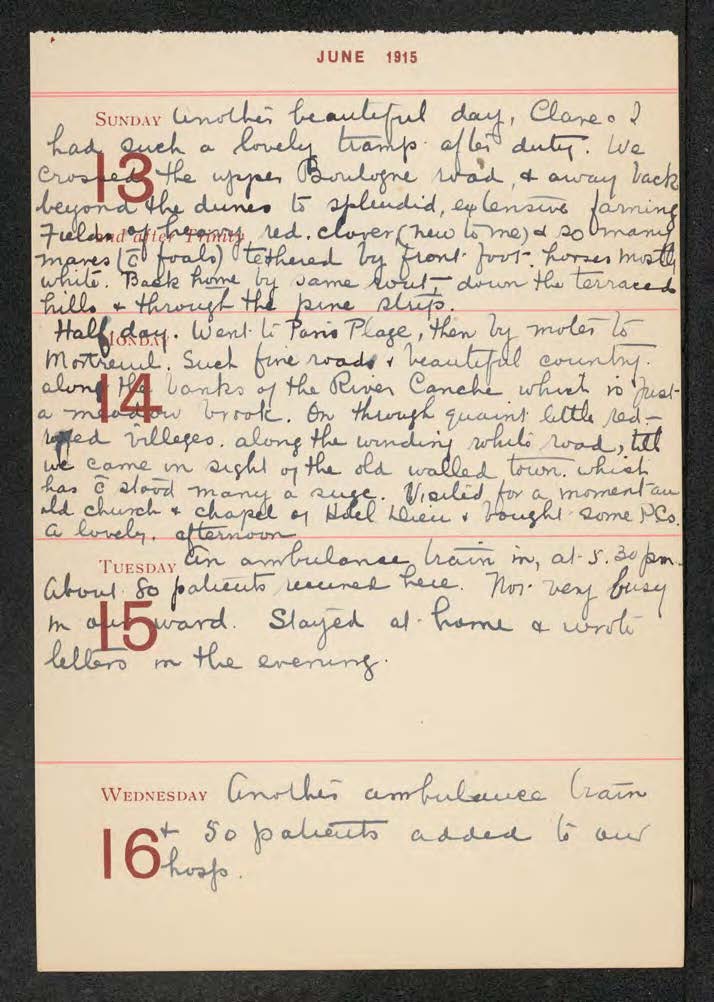 JUNE 1915
SUNDAY Another beautiful day, Clare & I
had such a lovely tramp after duty. We
13
crossed the upper Boulogne road, & away back
beyond the dunes to splendid, extensive farming
2nd after Trinity
Fields of heavy red. clover (new to me) & so many
mares (c̄ foals) tethered by front foot. horses mostly
white. Back home by same rout, down the terraced
hills & through the pine strip.
MONDAY
Half day. Went to Paris Plage, then by motor to
Montreuil. Such fine roads & beautiful country.
14
along the banks of the River Canche which is just
a meadow brook. On through quaint little red-
villages. along the winding white road, till
we came in sight of the old walled town. which
has c̄ stood many a siege. Visited for a moment an
old church & chapel of Hotel Dieu & bought some P.Cs.
A lovely. afternoon
TUESDAY An ambulance train in, at 5.30 pm.
About 80 patients received here. Not very busy
15
in our ward. Stayed at home & wrote
letters in the evening.
WEDNESDAY Another ambulance train
16 & 50 patients added to our
hosp.